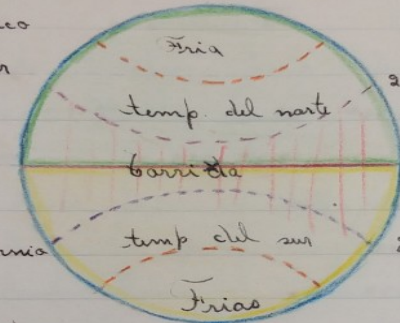 co
Fria
r
2
temp. del norte
torrida
rnia
temp del sur
2
Frias